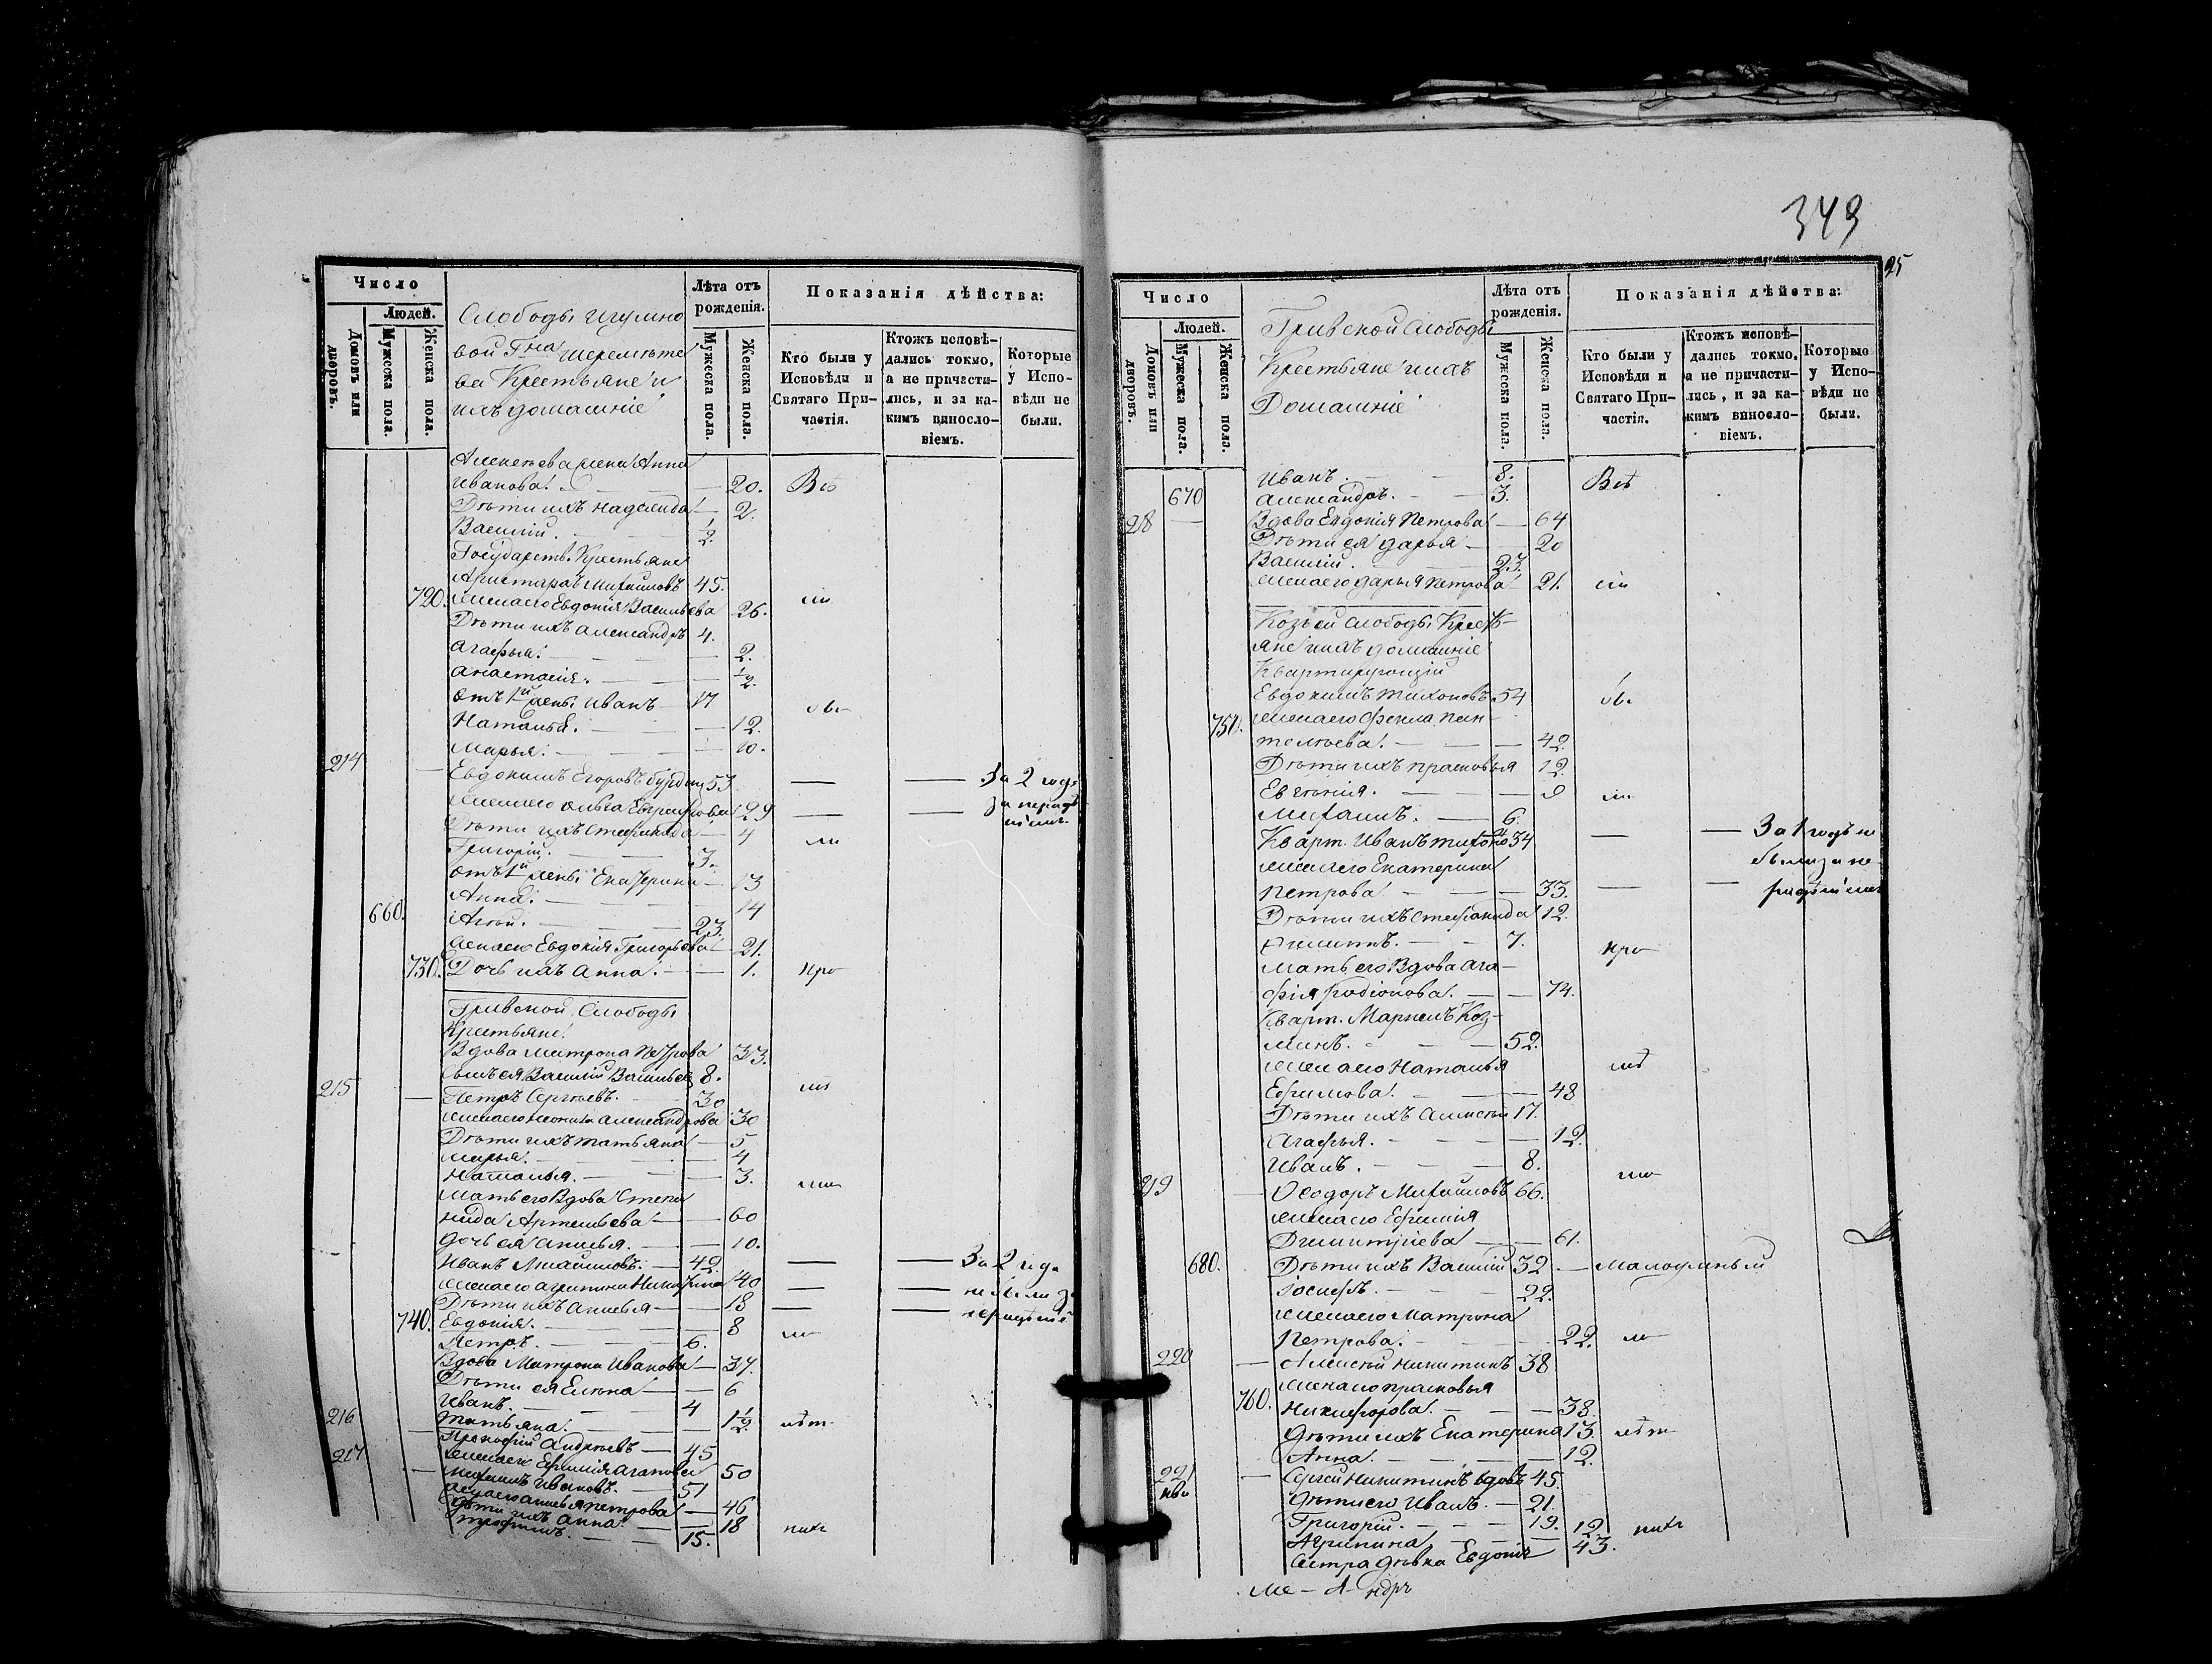 349
25
Число
Людей.
Домовъ или дворовъ.
Мужеска пола.
Женска пола.
Слободы Игумно
вой Гна Шеремѣте
ва Крестьяне и
ихъ домашніе
Лѣта отъ рожденія.
Мужеска пола.
Женска пола.
Показанія дѣйства:
Кто были у Исповѣди и Святаго Причастія.
Ктожъ исповѣдались токмо, а не причастились, и за какимъ винословіемъ.
Которые у Исповѣди не были.
Алексѣева жена Анна
Иванова. — 20. Всѣ
Дѣти ихъ Надежда — 2.
Василій. — ½.
Государств. Крестьяне
Аристархъ Михайловъ 45.
720. жена его Евдокія Васильева 26.
Дѣти ихъ Александръ 4.
Агафья. — 2.
Анастасія. — ½.
Отъ 1й жены Иванъ — 17
Наталья. — 12.
Марья. — 10.
214 — Евдокимъ Егоровъ 53 — — За 2 года
жена его Ольга 29 — —
Дѣти ихъ Степанида — 4
Григорій. — 3.
Отъ 1й жены Екатерина — 13
Анна. — 14
660. 23.
жена его Евдокія Григорьева — 21.
730. Дочь ихъ Анна. — 1. при
Гривской Слободы
Крестьяне.
Вдова Матрона Петрова 33.
сынъ ея Василій 8.
215 — Петръ Сергѣевъ. — 30
жена его Александрова 30
Дѣти ихъ Татьяна — 5
Марья. — 4
Наталья. — 3.
Мать его Вдова Степа
нида Артемьева — 60
Дочь ея Анисья. — 10.
Иванъ — 42. — — За 2 года
жена его Агрипина 40 — — не были за
Дѣти ихъ Анисья — 18 — —
740. Евдокія. — 8
Петръ. — 6.
Вдова Матрона Иванова — 37.
Дѣти ея Елена — 6
Иванъ. — 4
Татьяна. — 1½.
216 — Прокофій Андреевъ — 45
жена его Ефимія 50
217 — Михаилъ Ивановъ. — 51
жена его Анисья Петрова — 46
Дѣти ихъ Анна. — 18
Трофимъ. — 15.
Число
Людей.
Домовъ или дворовъ.
Мужеска пола.
Женска пола.
Гривской Слободы
Крестьяне и ихъ
Домашніе
Лѣта отъ рожденія.
Мужеска пола.
Женска пола.
Показанія дѣйства:
Кто были у Исповѣди и Святаго Причастія.
Ктожъ исповѣдались токмо, а не причастились, и за какимъ винословіемъ.
Которые у Исповѣди не были.
Иванъ. — 8. Всѣ
670 Александръ. — 3.
218 — Вдова Евдокія Петрова — 64
Дѣти ея Дарья — 20
Василій. — 23.
жена его Дарья Петрова 21.
Козьей Слободы Кресть-
яне и ихъ домашніе
Квартирующій
Евдокимъ Тихоновъ 54
750. жена его Фекла Пан-
телѣева. — 42.
Дѣти ихъ Прасковья 12.
Евгенія. — 9
Михаилъ. — 6.
Кварт. Иванъ 34 — — За 1 годъ не
жена его Екатерина были за не-
Петрова — 33. — — радѣніемъ
Дѣти ихъ Степанида 12.
Филиппъ. — 7.
Мать его Вдова Ага-
фія Родіонова. — 74.
Кварт. Маркелъ Коз-
минъ. — 52.
жена его Наталья
Ефимова. — 48
Дѣти ихъ Алексѣй 17.
Агафья. — 12.
Иванъ. — 8.
219 — Ѳеодоръ Михайловъ 66.
жена его Ефимія
Димитріева — 61.
680. Дѣти ихъ Василій 32 — Малоумный
Іосифъ. — 22.
жена его Матрона
Петрова. — 22.
220 — Алексѣй Никитинъ 38
жена его Прасковья
760. Никифорова. — 38.
Дѣти ихъ Екатерина 13.
Анна. — 12.
221 — Сергѣй Никитинъ вдовъ 45.
Дѣти его Иванъ. — 21.
Григорій. — 19.
Агрипина. — 12.
Сестра Дѣвка Евдокія 43.